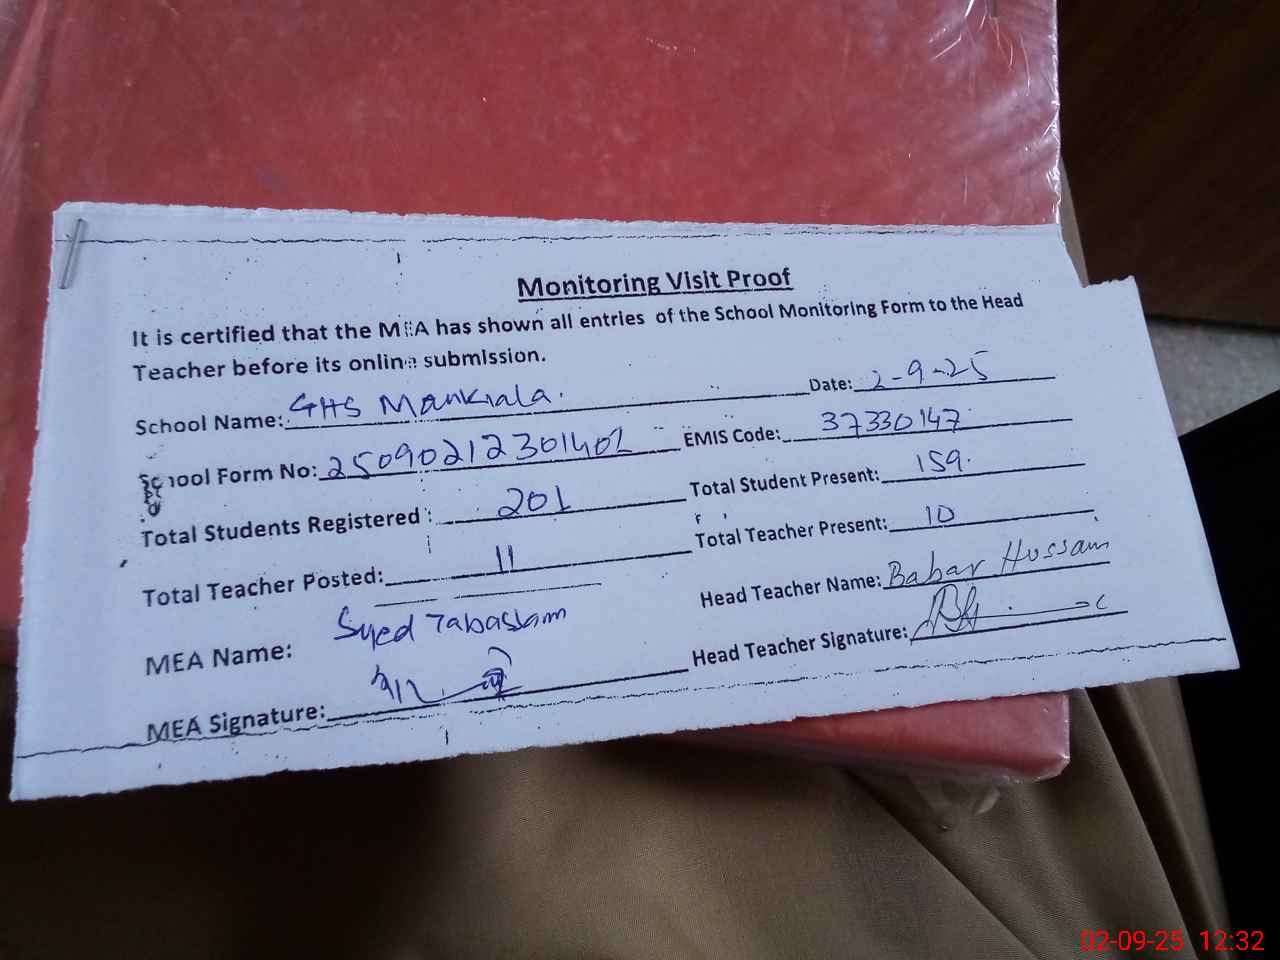 Monitoring Visit Proof
It is certified that the MEA has shown all entries of the School Monitoring Form to the Head
Teacher before its online submission.
School Name: GHS Mankiala. Date: 2-9-25
School Form No: 25090212301402 EMIS Code: 37330147
Total Students Registered: 201 Total Student Present: 159.
Total Teacher Posted: 11 Total Teacher Present: 10
MEA Name: Syed Tabassam Head Teacher Name: Babar Hussain
MEA Signature: Head Teacher Signature:
02-09-25 12:32